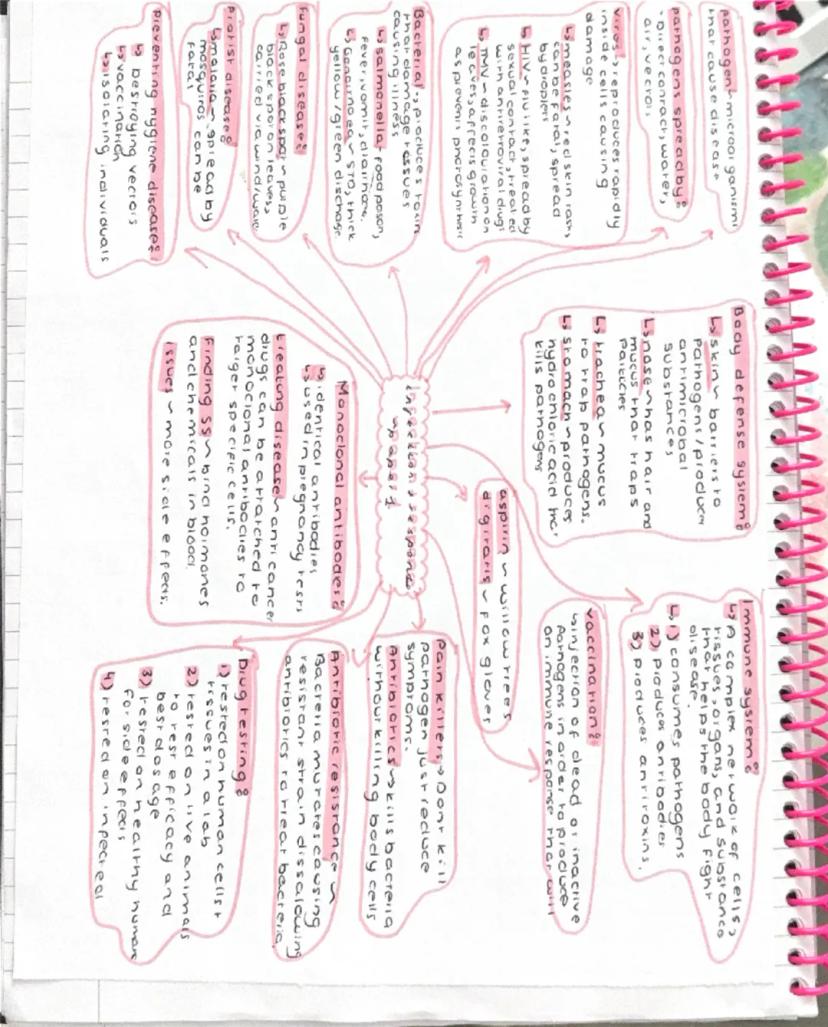 pathogen~microorganism
that cause disease
pathogens spread by:
- Direct contact, water,
air, vectors
virus: reproduces rapidly
inside cells causing
damage
↳measles~red skin rash,
can be fatal, spread
by droplets
↳HIV~flu like, spread by
sexual contact, treated
with antiretroviral drugs
↳TMV~discolouration on
leaves, affects growth
as prevents photosynthesis
Bacterial, produces toxin
that damage tissues
causing illness
↳salmonella, food poison,
fever, vomit, diarrhoea,
↳Gonorrhoea~STD, thick
yellow/green discharge
Fungal disease:
↳Rose black spot~purple
black spot on leaves,
carried via wind/water
Protist disease:
↳malaria~spread by
mosquitos can be
fatal
Preventing hygiene disease:
↳ Destroying vectors
↳vaccination
↳isolating individuals
Body defense system:
↳skin~barriers to
pathogens/produces
antimicrobial
substances
↳nose~has hair and
mucus that traps
particles
↳trachea~mucus
to trap pathogens.
↳stomach~produces
hydrochloric acid that
kills pathogens
Infection & response
~paper 1
aspirin ~ willow trees
digitalis ~ fox gloves
Monoclonal antibodies:
↳identical antibodies
↳used in pregnancy tests
treating disease~anti cancer
drugs can be attached to
monoclonal antibodies to
target specific cells.
Finding SS~bind hormones
and chemicals in blood.
issues~more side effects.
Immune system:
↳A complex network of cells,
tissues, organs, and substance
that helps the body fight
disease.
↳1) consumes pathogens
2) produces antibodies
3) produces antitoxins.
vaccination:
↳injection of dead or inactive
Pathogens in order to produce
an immune response that will
Pain killers→Dont kill
pathogen just reduce
symptoms.
Antibiotics~kills bacteria
without killing body cells
Antibiotic resistance~
Bacteria mutates causing
resistant strain dissalowing
antibiotics to treat bacteria
Drug testing:
1) tested on human cells+
tissues in a lab
2) tested on live animals
to test efficacy and
best dosage
3) tested on healthy human
for side effects
4) tested on infected